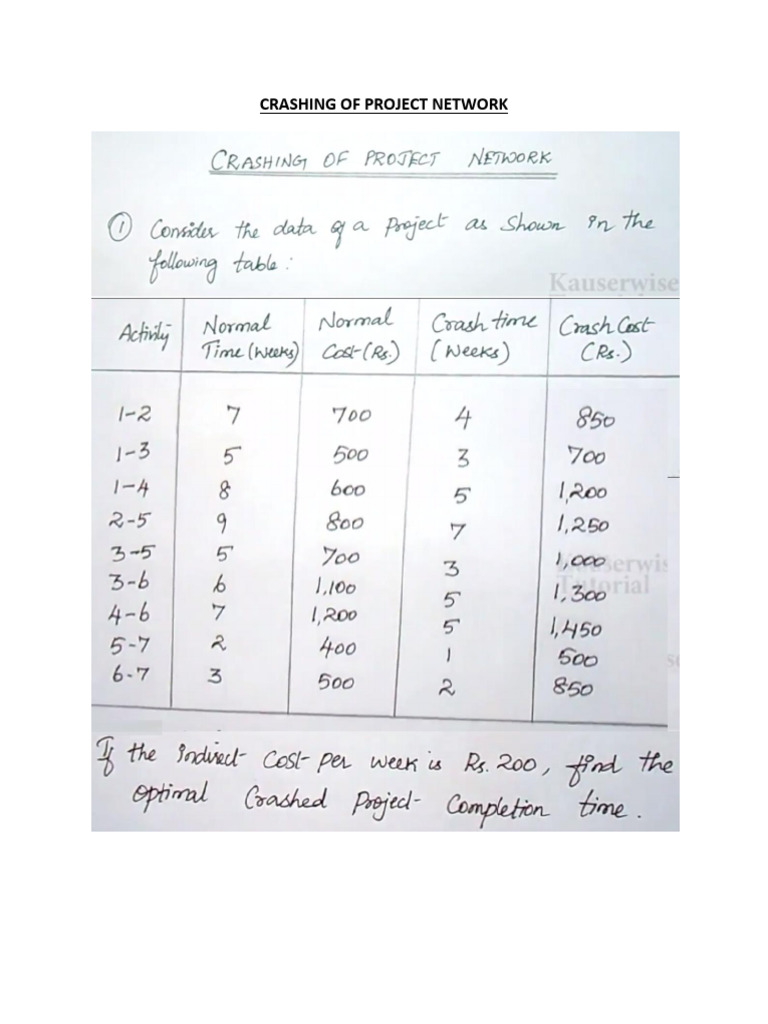 CRASHING OF PROJECT NETWORK
CRASHING OF PROJECT NETWORK
① Consider the data of a Project as shown in the
following table:
Kauserwise
Activity Normal Time (Weeks) Normal Cost (Rs.) Crash time (Weeks) Crash Cost (Rs.)
1-2 7 700 4 850
1-3 5 500 3 700
1-4 8 600 5 1,200
2-5 9 800 7 1,250
3-5 5 700 3 1,000
3-6 6 1,100 5 1,300
4-6 7 1,200 5 1,450
5-7 2 400 1 500
6-7 3 500 2 850
Tutorial
If the indirect cost per week is Rs. 200, find the
optimal Crashed Project Completion time.